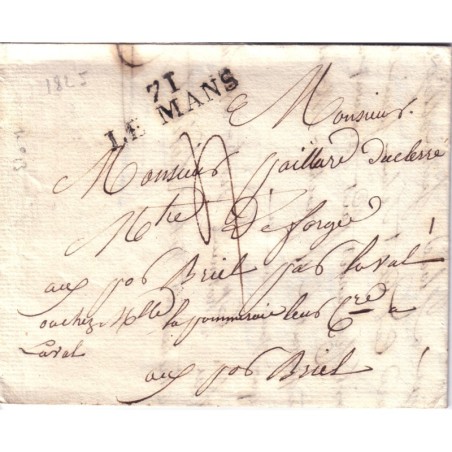 1825
71
LE MANS
a Monsieur
Monsieur Gaillard Duclerré
Mtre De forges
aux por Briel par laval
ou chez Melle la pommeraie leur
Laval
aux por Briel